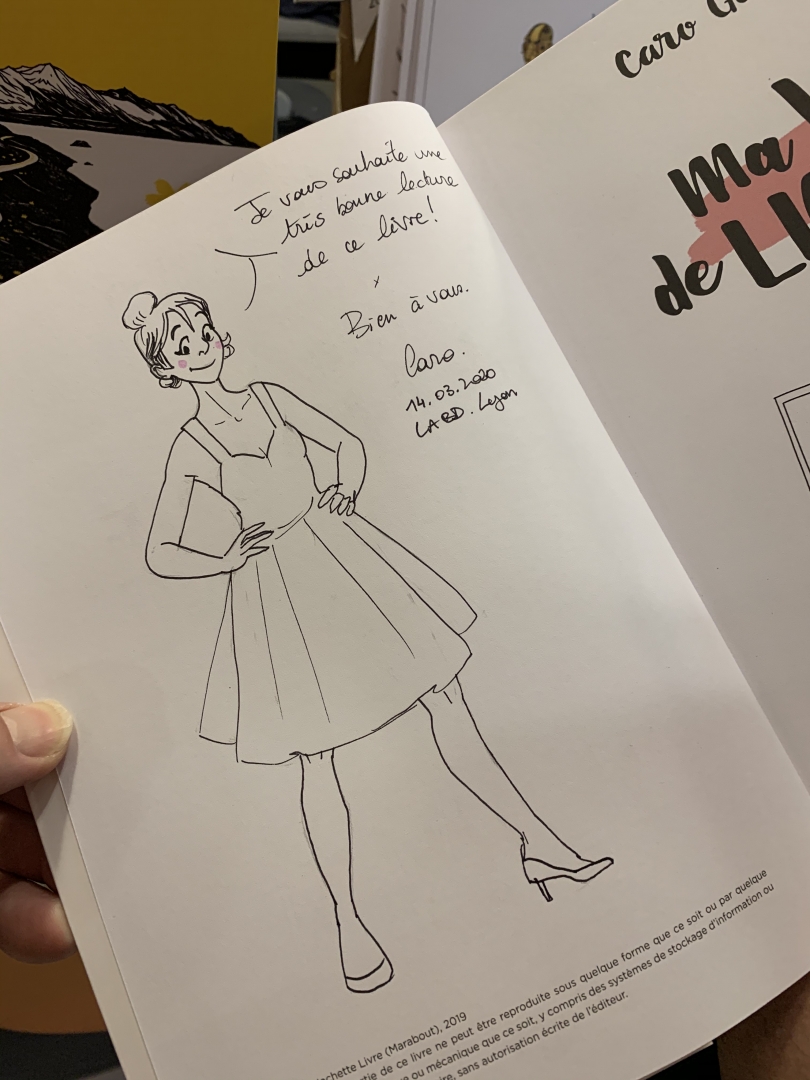 Je vous souhaite une
très bonne lecture
de ce livre!
x
Bien à vous.
Caro.
14.03.2020
LABD. Lyon
Caro G
Ma
de LI
achette Livre (Marabout), 2019
tie de ce livre ne peut être reproduite sous quelque forme que ce soit ou par quelque
ue ou mécanique que ce soit, y compris des systèmes de stockage d'information ou
ire, sans autorisation écrite de l'éditeur.